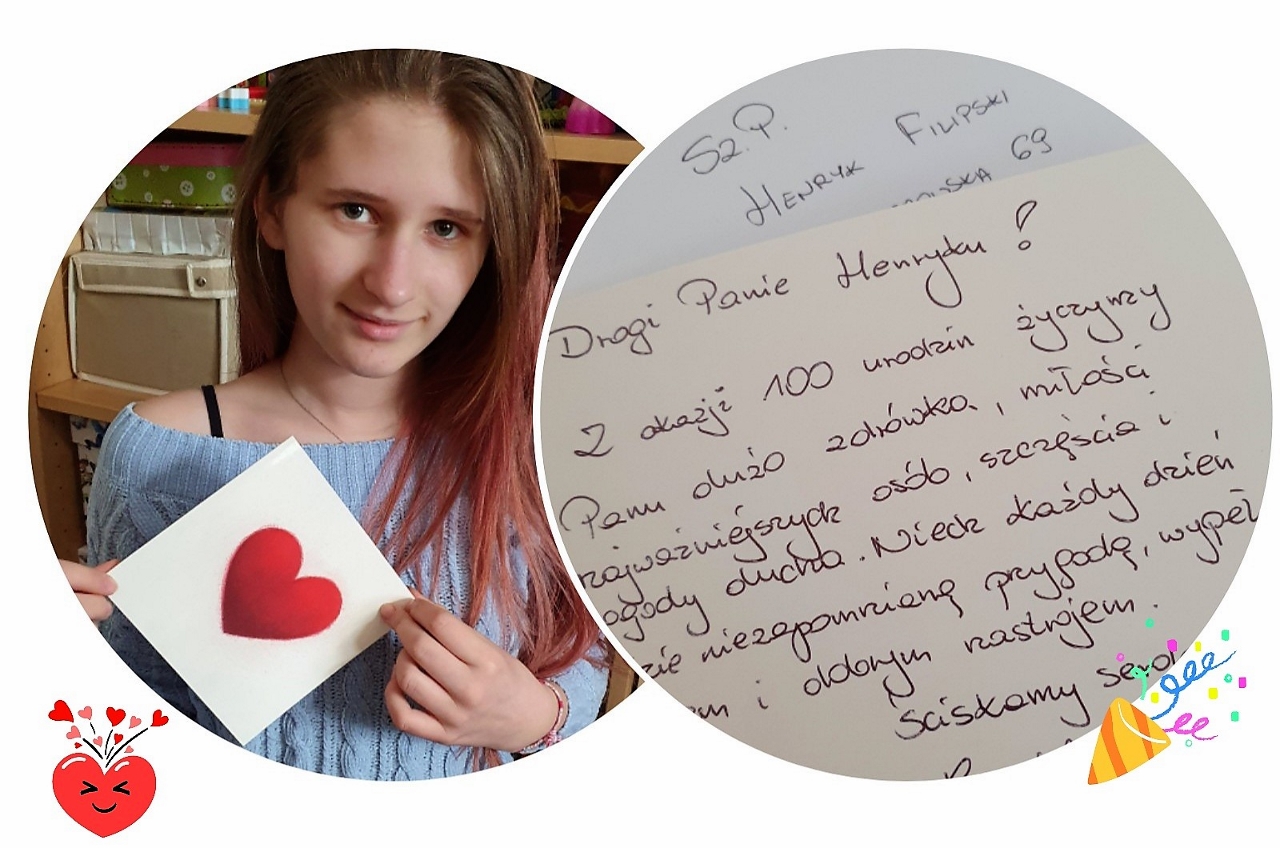 Sz.P.
HENRYK FILIPSKI
69
Drogi Panie Henryku!
Z okazji 100 urodzin życzymy
Panu dużo zdrówka, miłości
najważniejszych osób, szczęścia i
ogody ducha. Niech każdy dzień
zie niezapomnianą przygodą, wypeł
em i dobrym nastrojem.
ściskamy